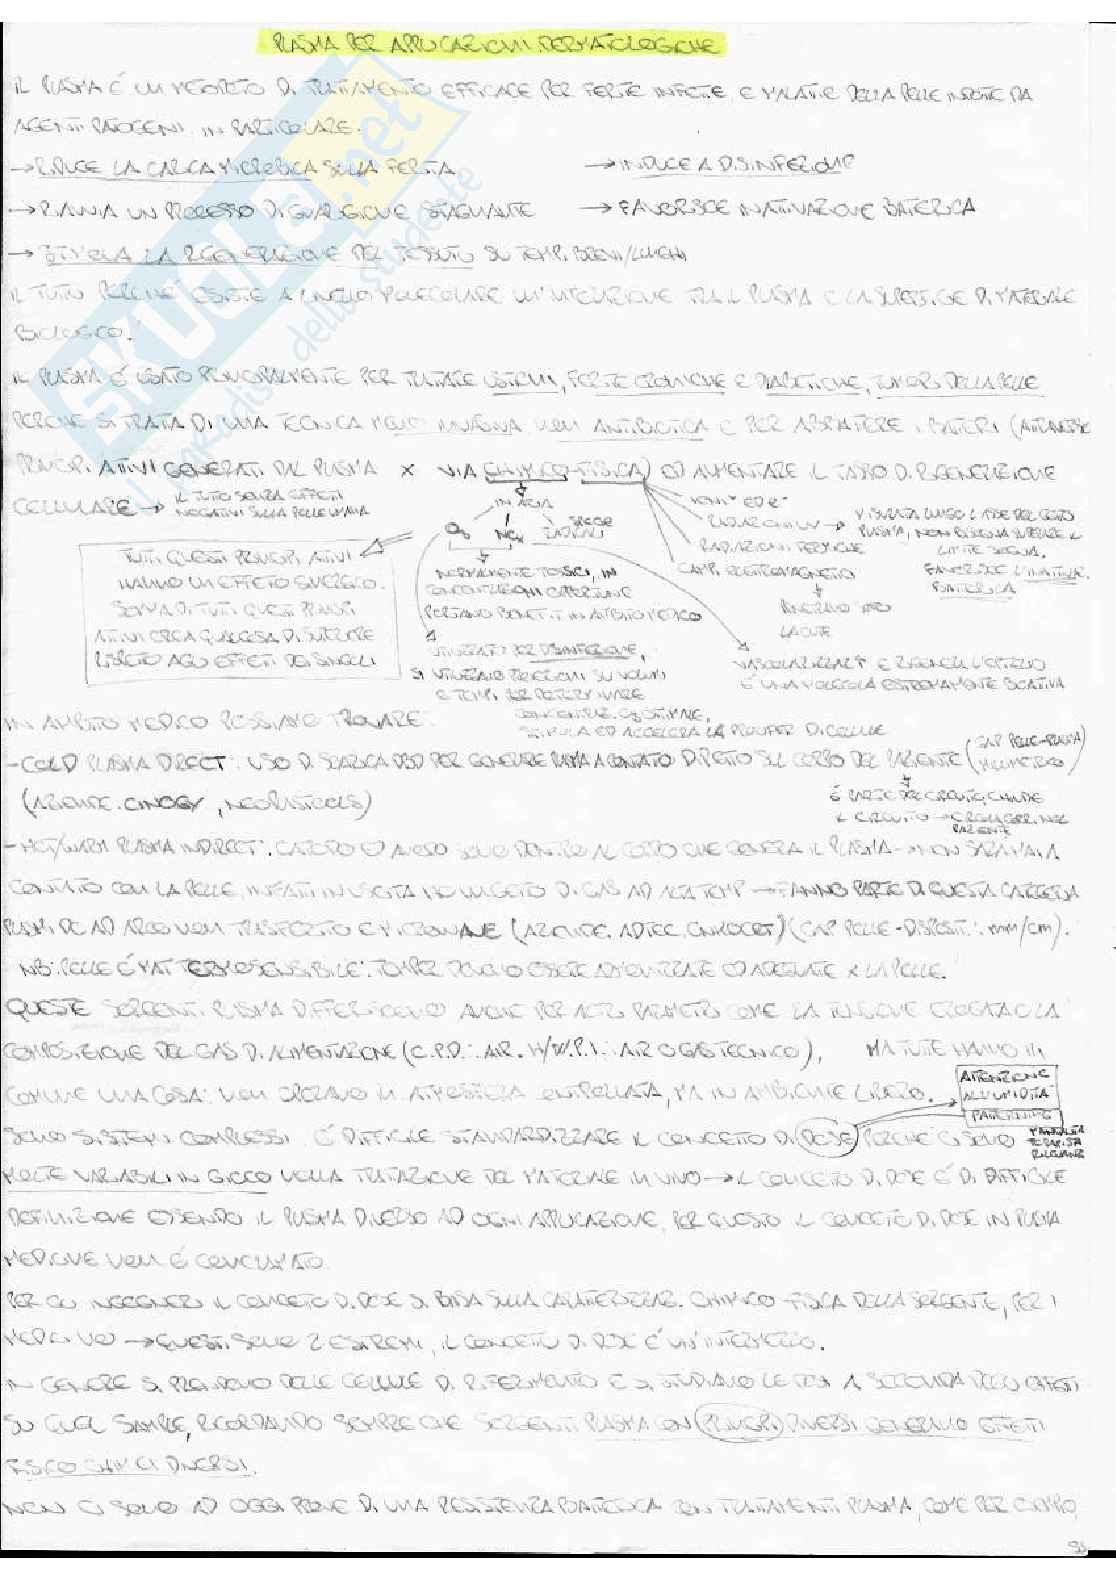 PLASMA PER APPLICAZIONI DERMATOLOGICHE
IL PLASMA È UN METODO DI TRATTAMENTO EFFICACE PER FERITE INFETTE E MALATTIE DELLA PELLE INDOTTE DA
AGENTI PATOGENI, IN PARTICOLARE:
→ RIDUCE LA CARICA MICROBICA SULLA FERITA
→ INDUCE A DISINFEZIONE
→ RIAVVIA UN PROCESSO DI GUARIGIONE STAGNANTE
→ FAVORISCE INATTIVAZIONE BATTERICA
→ STIMOLA LA RIGENERAZIONE DEL TESSUTO SU TEMPI BREVI/LUNGHI
IL TUTTO PERCHÉ ESISTE A LIVELLO MOLECOLARE UN'INTERAZIONE TRA IL PLASMA E LA SUPERFICIE DI MATERIALE
BIOLOGICO.
IL PLASMA È USATO PRINCIPALMENTE PER TRATTARE USTIONI, FERITE CRONICHE E DIABETICHE, TUMORI DELLA PELLE
PERCHÉ SI TRATTA DI UNA TECNICA MENO INVASIVA NON ANTIBIOTICA E PER ABBATTERE I BATTERI (ATTRAVERSO
PRINCIPI ATTIVI GENERATI DAL PLASMA X VIA CHIMICO-FISICA) ED AUMENTARE IL TASSO DI RIGENERAZIONE
CELLULARE → IL TUTTO SENZA EFFETTI
NEGATIVI SULLA PELLE UMANA
IN ARIA
O₃ NOx SPECIE RADICALI
IONI⁺ ED e⁻
RADIAZIONI UV → MISURATA LUNGO L'ASSE DEL GETTO
PLASMA, NON BISOGNA SUPERARE IL
LIMITE SOGLIA.
FAVORISCE L'INATTIVAZ.
BATTERICA
RADIAZIONI TERMICHE
CAMPI ELETTROMAGNETICI
LA CUTE
TUTTI QUESTI PRINCIPI ATTIVI
HANNO UN EFFETTO SINERGICO.
SOMMA DI TUTTI QUESTI PRINCIPI
ATTIVI CREA QUALCOSA DI SUPERIORE
RISPETTO AGLI EFFETTI DEI SINGOLI
NORMALMENTE TOSSICI, IN
CONCENTRAZIONI OPPORTUNE
PORTANO BENEFICI IN AMBITO MEDICO
UTILIZZATO PER DISINFEZIONE,
SI UTILIZZANO
E TEMPI PER DETERMINARE
CONCENTRAZ. O₃ OTTIMALE,
STIMOLA ED ACCELERA LA PROLIFER. DI CELLULE
E RIGENERA L'EPITELIO
È UNA MOLECOLA ESTREMAMENTE REATTIVA
IN AMBITO MEDICO POSSIAMO TROVARE:
- COLD PLASMA DIRECT: USO DI SCARICA DBD PER GENERARE PLASMA A CONTATTO DIRETTO SUL CORPO DEL PAZIENTE (GAP PELLE-PLASMA MILLIMETRICO)
(AZIENDE: CINOGY, NEOPLASTOOLS)
È PARTE DEL CIRCUITO, CHIUDE
IL CIRCUITO →
PAZIENTE
- HOT/WARM PLASMA INDIRECT: CATODO ED ANODO SONO DENTRO AL CORPO CHE GENERA IL PLASMA → NON SARÀ MAI A
CONTATTO CON LA PELLE, INFATTI IN USCITA HO UN GETTO DI GAS AD ALTA TEMP → FANNO PARTE DI QUESTA CATEGORIA
PLASMI DC AD ARCO NON TRASFERITO E MICROWAVE (AZIENDE: ADTEC) (GAP PELLE-DISPOSIT.: mm/cm).
NB: PELLE È MAT TERMOSENSIBILE: TEMPER DEVONO ESSERE ED ADEGUATE X LA PELLE.
QUESTE SORGENTI PLASMA DIFFERISCONO ANCHE PER ALTRI PARAMETRI COME LA TENSIONE EROGATA E LA
COMPOSIZIONE DEL GAS DI ALIMENTAZIONE (C.P.D.: AIR. H/W.P.I.: AIR O GAS TECNICO), MA TUTTE HANNO IN
COMUNE UNA COSA: NON OPERANO IN ATMOSFERA CONTROLLATA, MA IN AMBIENTE LIBERO.
ATTENZIONE
ALL'UMIDITÀ
SONO SISTEMI COMPLESSI È DIFFICILE STANDARDIZZARE IL CONCETTO DI DOSE PERCHÉ CI SONO
MOLTE VARIABILI IN GIOCO NELLA TRATTAZIONE DEL MATERIALE IN VIVO → IL CONCETTO DI DOSE È DI DIFFICILE
DEFINIZIONE ESSENDO IL PLASMA DIVERSO AD OGNI APPLICAZIONE, PER QUESTO IL CONCETTO DI DOSE IN PLASMA
MEDICINE NON È
PER GLI INGEGNERI IL CONCETTO DI DOSE SI BASA SULLA CARATTERIZZAZ. CHIMICO-FISICA DELLA SORGENTE, PER I
MEDICI NO → QUESTI SONO 2 ESTREMI, IL CONCETTO DI DOSE È UN'INTERMEZZO.
IN GENERE SI PRENDONO DELLE CELLULE DI RIFERIMENTO E SI STUDIANO LE DOSI A SECONDA DEGLI EFFETTI
SU QUEL SAMPLE, RICORDANDO SEMPRE CHE SORGENTI PLASMA CON DIVERSI GENERANO EFFETTI
FISICO CHIMICI DIVERSI.
NON CI SONO AD OGGI PROVE DI UNA RESISTENZA BATTERICA CON TRATTAMENTI PLASMA, COME PER ESEMPIO
SKUOLA.net
il paradiso dello studente